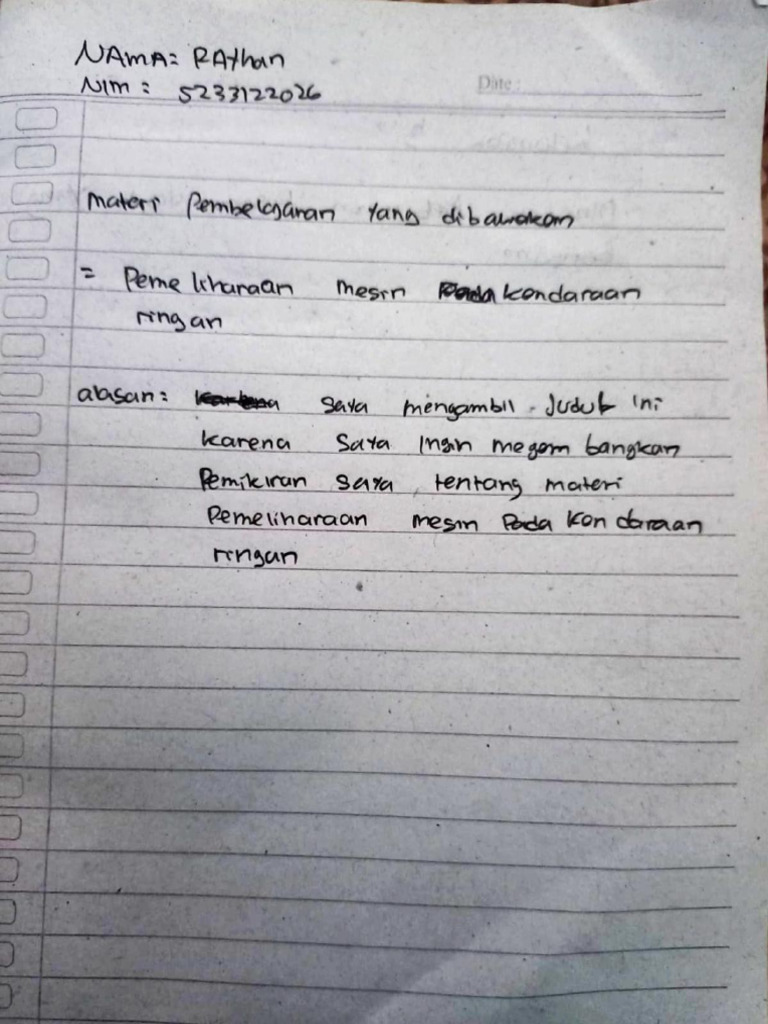 NAMA = RAYhan
NIM : 5233122026
Date :
materi Pembelajaran Yang dibawakan
= Pemeliharaan mesin Pada kendaraan
ringan
alasan : karena saya mengambil Judul ini
karena saya Ingin megembangkan
Pemikiran saya, tentang materi
Pemeliharaan mesin Pada Kendaraan
ringan